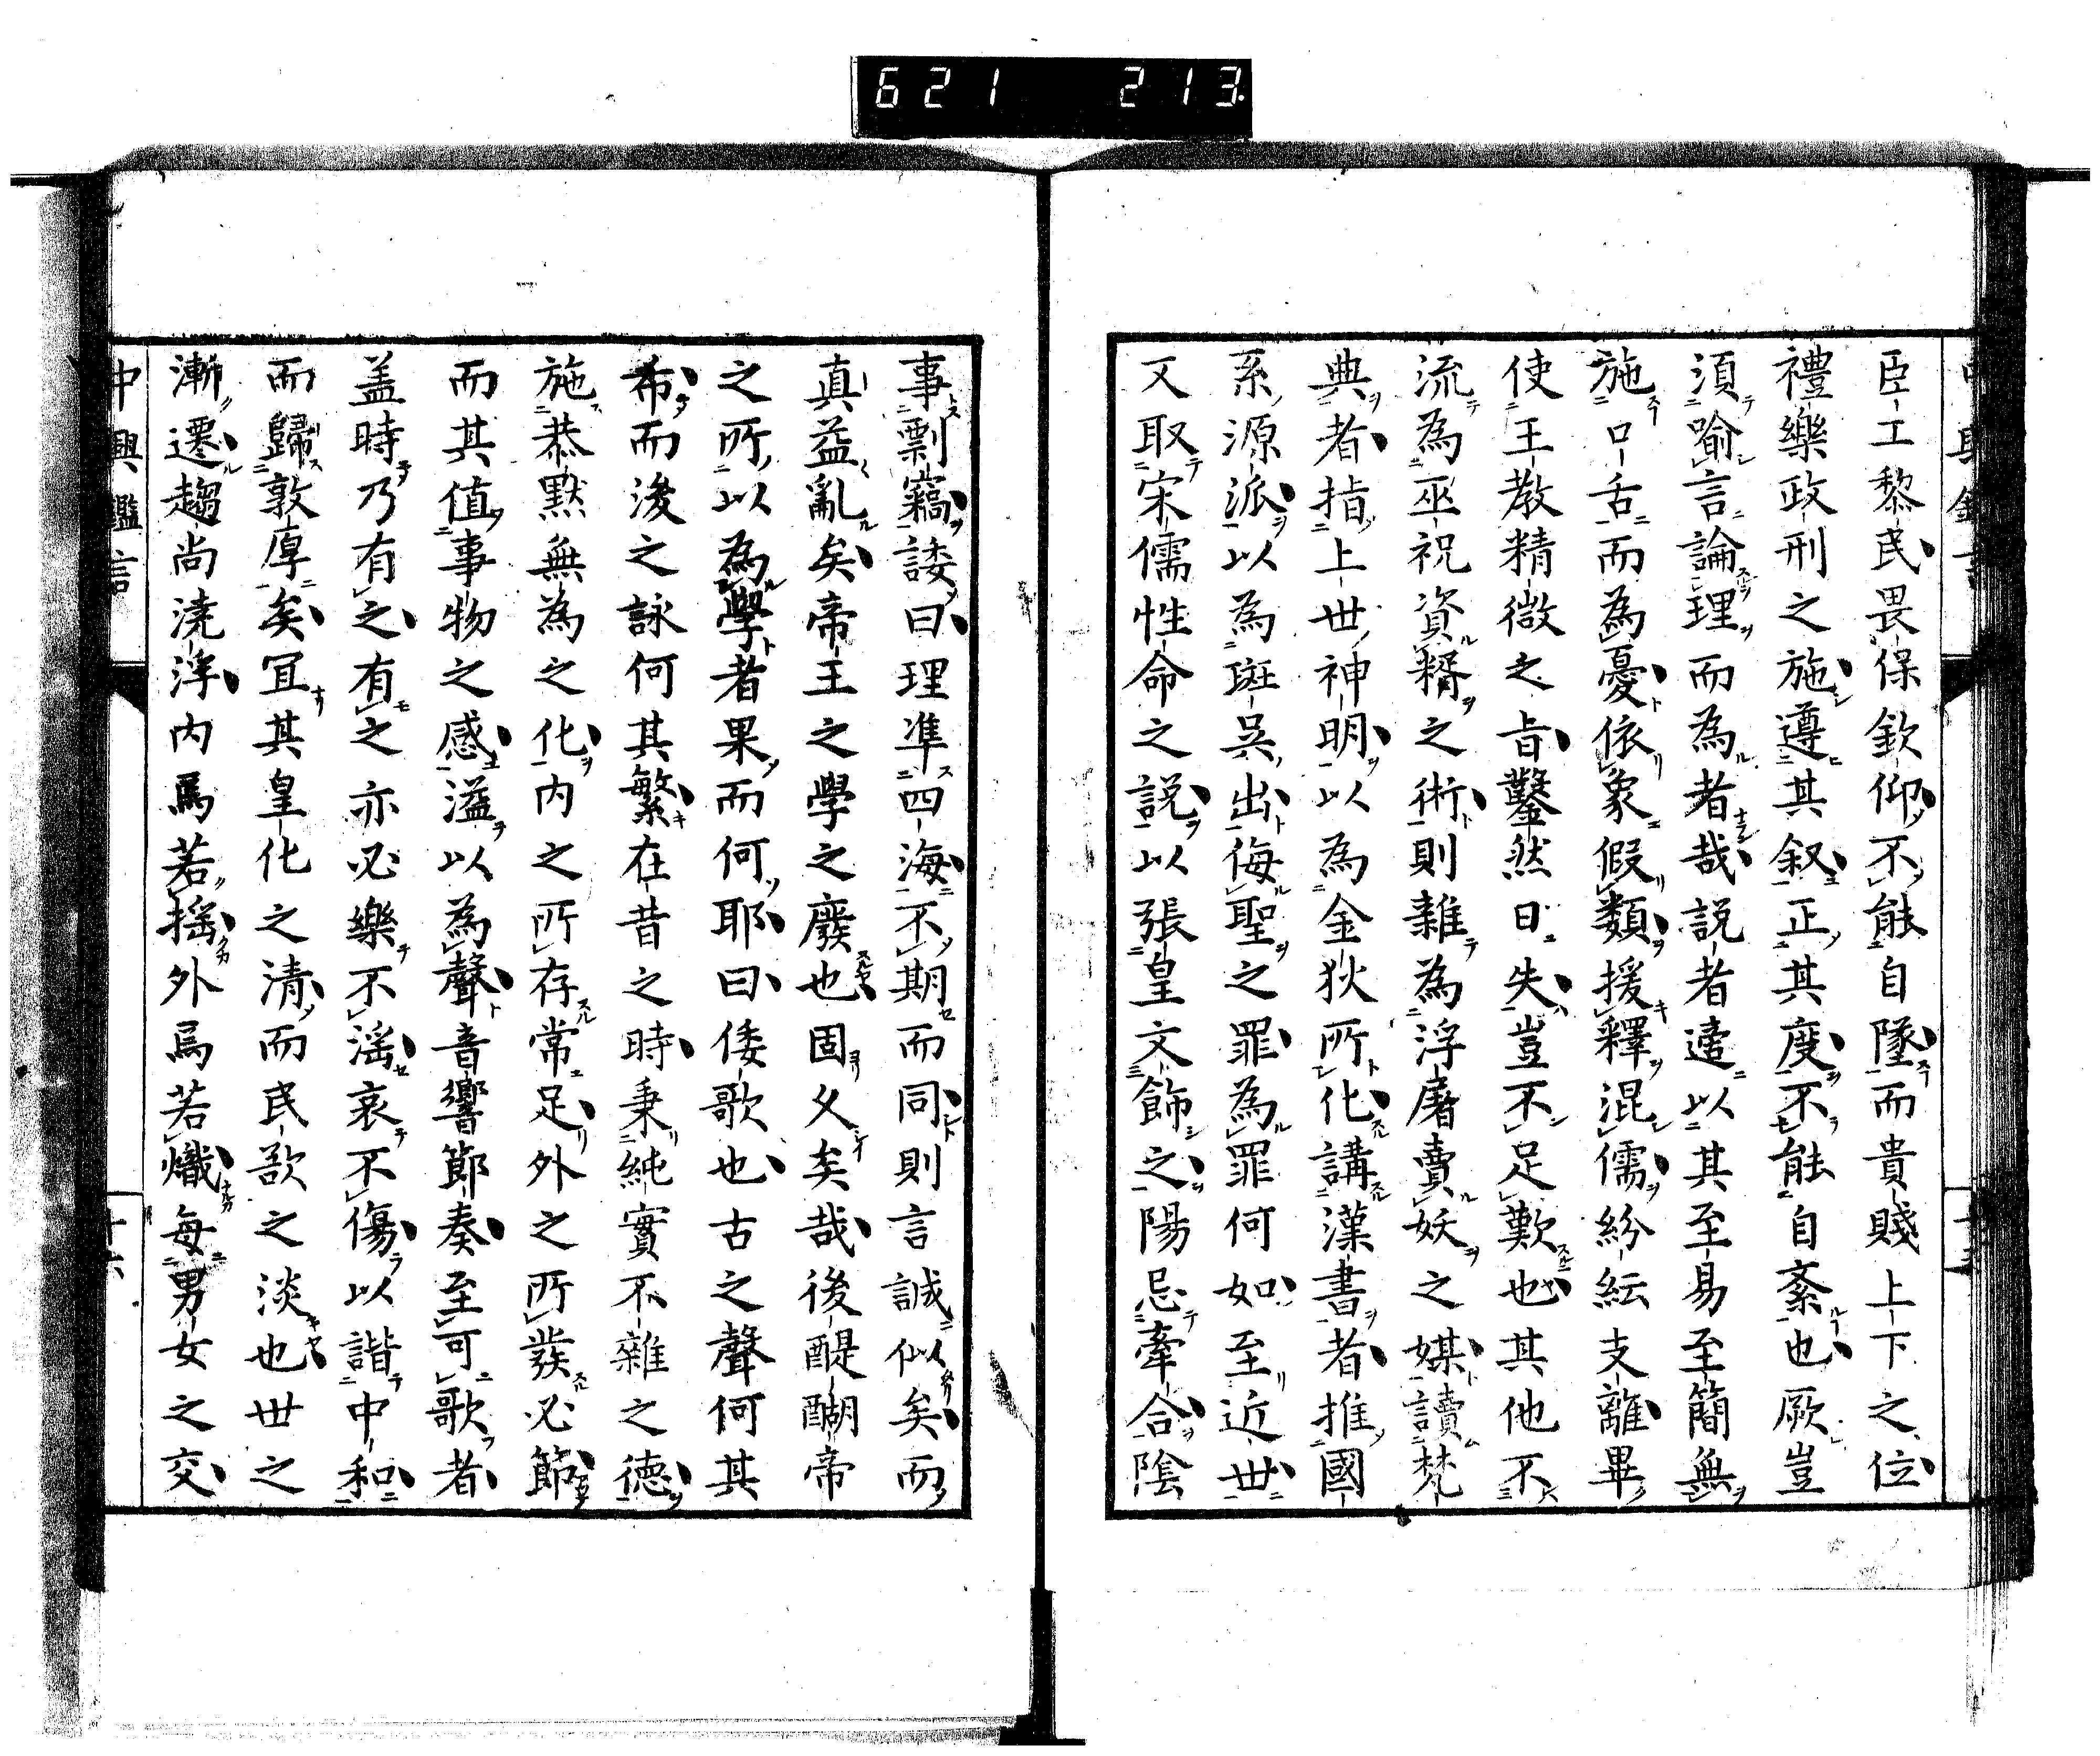 621 213
臣工黎民畏保欽仰不能自墜而貴賤上下之位
禮樂政刑之施遵其叙正其度不能自紊也厥豈
須喻言論理而為者哉説者遑以其至易至簡無
施口舌而為憂依象假類援釋混儒紛紜支離畢
使王教精微之旨鑿然日失豈不足歎也其他不
流為巫祝資糈之術則雜為浮屠賣妖之媒讀梵
典者指上世神明以為金狄所化講漢書者推國
系源派以為斑吳出侮聖之罪為罪何如至近世
又取宋儒性命之説以張皇文飾之陽忌牽合陰
事剽竊諉曰理準四海不期而同則言誠似矣而
真益亂矣帝王之學之廢也固久矣哉後醍醐帝
之所以為學者果而何耶曰倭歌也古之聲何其
希而後之詠何其繁在昔之時秉純實不雜之德
施恭默無為之化内之所存常足外之所發必節
而其值事物之感溢以為聲音響節奏至可歌者
盖時乃有之有之亦必樂不滛哀不傷以諧中和
而歸敦厚矣宜其皇化之清而民歌之淡也世之
漸遷趨尚澆浮内焉若搖外焉若熾每男女之交
中興鑑言
十六